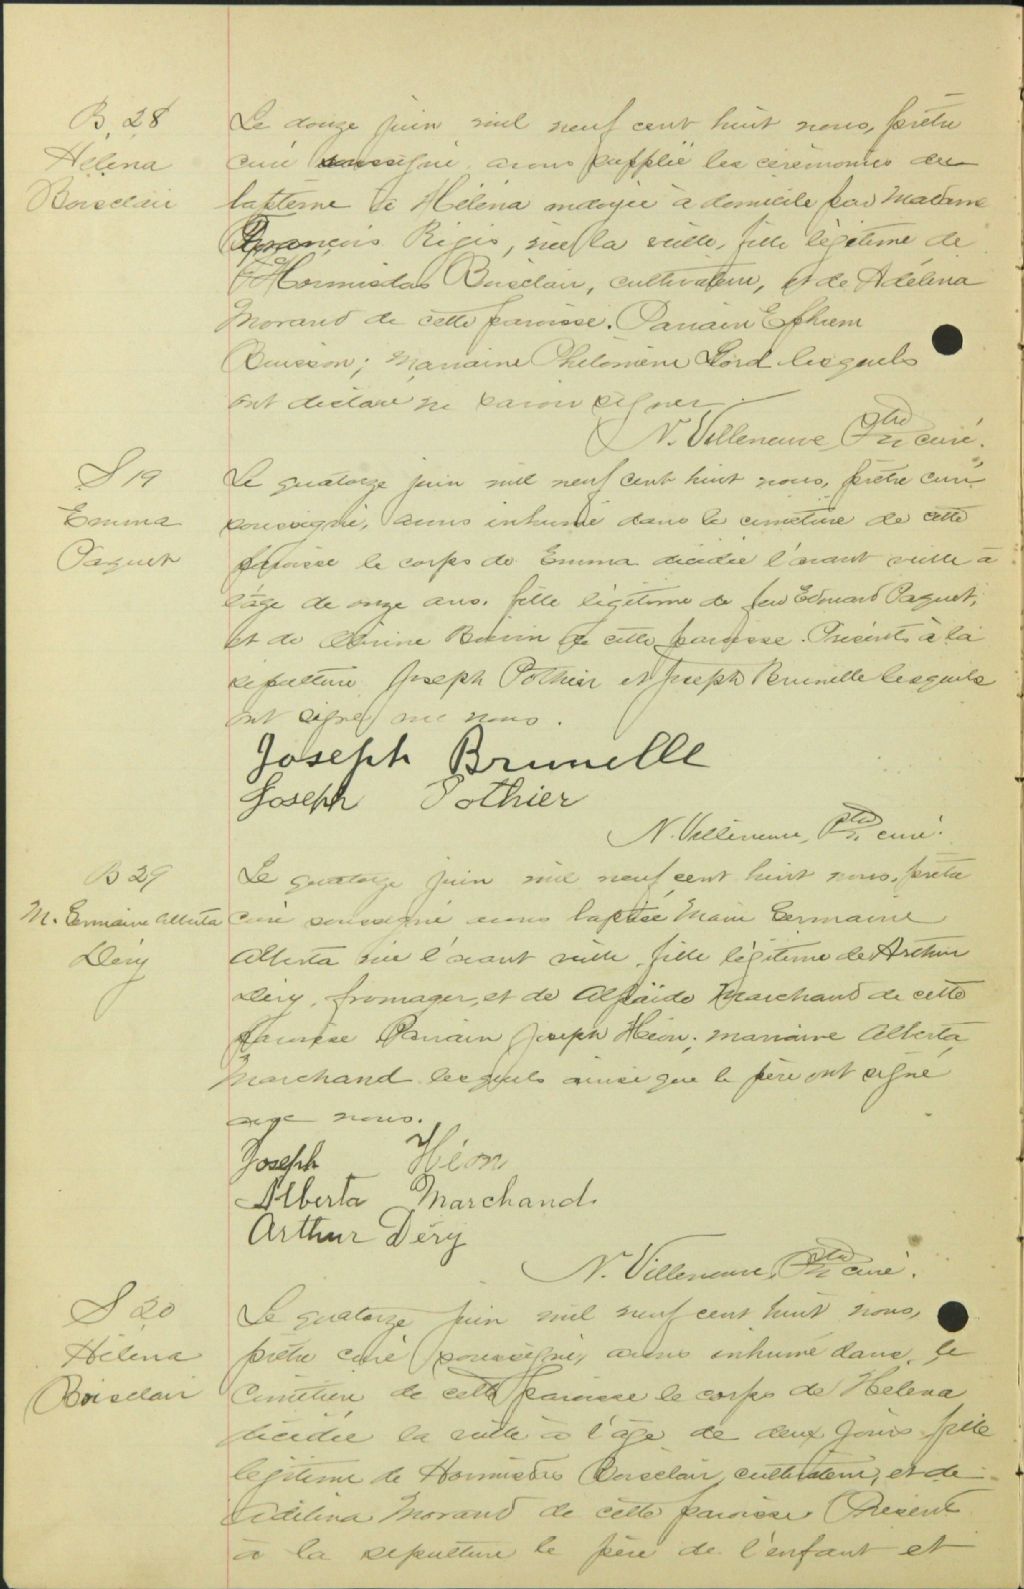 B. 28
Hélèna
Boisclair
Le douze juin mil neuf cent huit nous, prêtre
curé soussigné avons supplié les cérémonies du
baptême de Hélèna ondoyée à domicile par Madame
François Régis, née la veille, fille légitime de
Hormisdas Boisclair, cultivateur, et de Adélina
Morand de cette paroisse. Parrain Ephrem
Buisson; marraine Philomène Lord lesquels
ont déclaré ne savoir signer.
N. Villeneuve, Ptre curé.
S 19
Emma
Paquet
Le quatorze juin mil neuf cent huit nous, prêtre curé
soussigné, avons inhumé dans le cimetière de cette
paroisse le corps de Emma décédée l'avant veille à
l'âge de onze ans, fille légitime de feu Edouard Paquet,
et de Boivin de cette paroisse. Présents à la
sépulture Joseph Pothier et Joseph Brunelle lesquels
ont signé avec nous.
Joseph Brunelle
Joseph Pothier
N. Villeneuve, Ptre curé.
B 29
M. Germaine Alberta
Déry
Le quatorze juin mil neuf cent huit nous, prêtre
curé soussigné avons baptisé Marie Germaine
Alberta née l'avant veille, fille légitime de Arthur
Déry, fromager, et de Alphaïde Marchand de cette
paroisse Parrain Joseph Héon; marraine Alberta
Marchand lesquels ainsi que le père ont signé
avec nous.
Joseph Héon
Alberta Marchand.
Arthur Déry
N. Villeneuve, Ptre curé.
S 20
Hélèna
Boisclair
Le quatorze juin mil neuf cent huit nous,
prêtre curé soussigné, avons inhumé dans le
cimetière de cette paroisse le corps de Hélèna
décédée la veille à l'âge de deux jours fille
légitime de Hormisdas Boisclair, cultivateur, et de
Adélina Morand de cette paroisse Présent
à la sépulture le père de l'enfant et